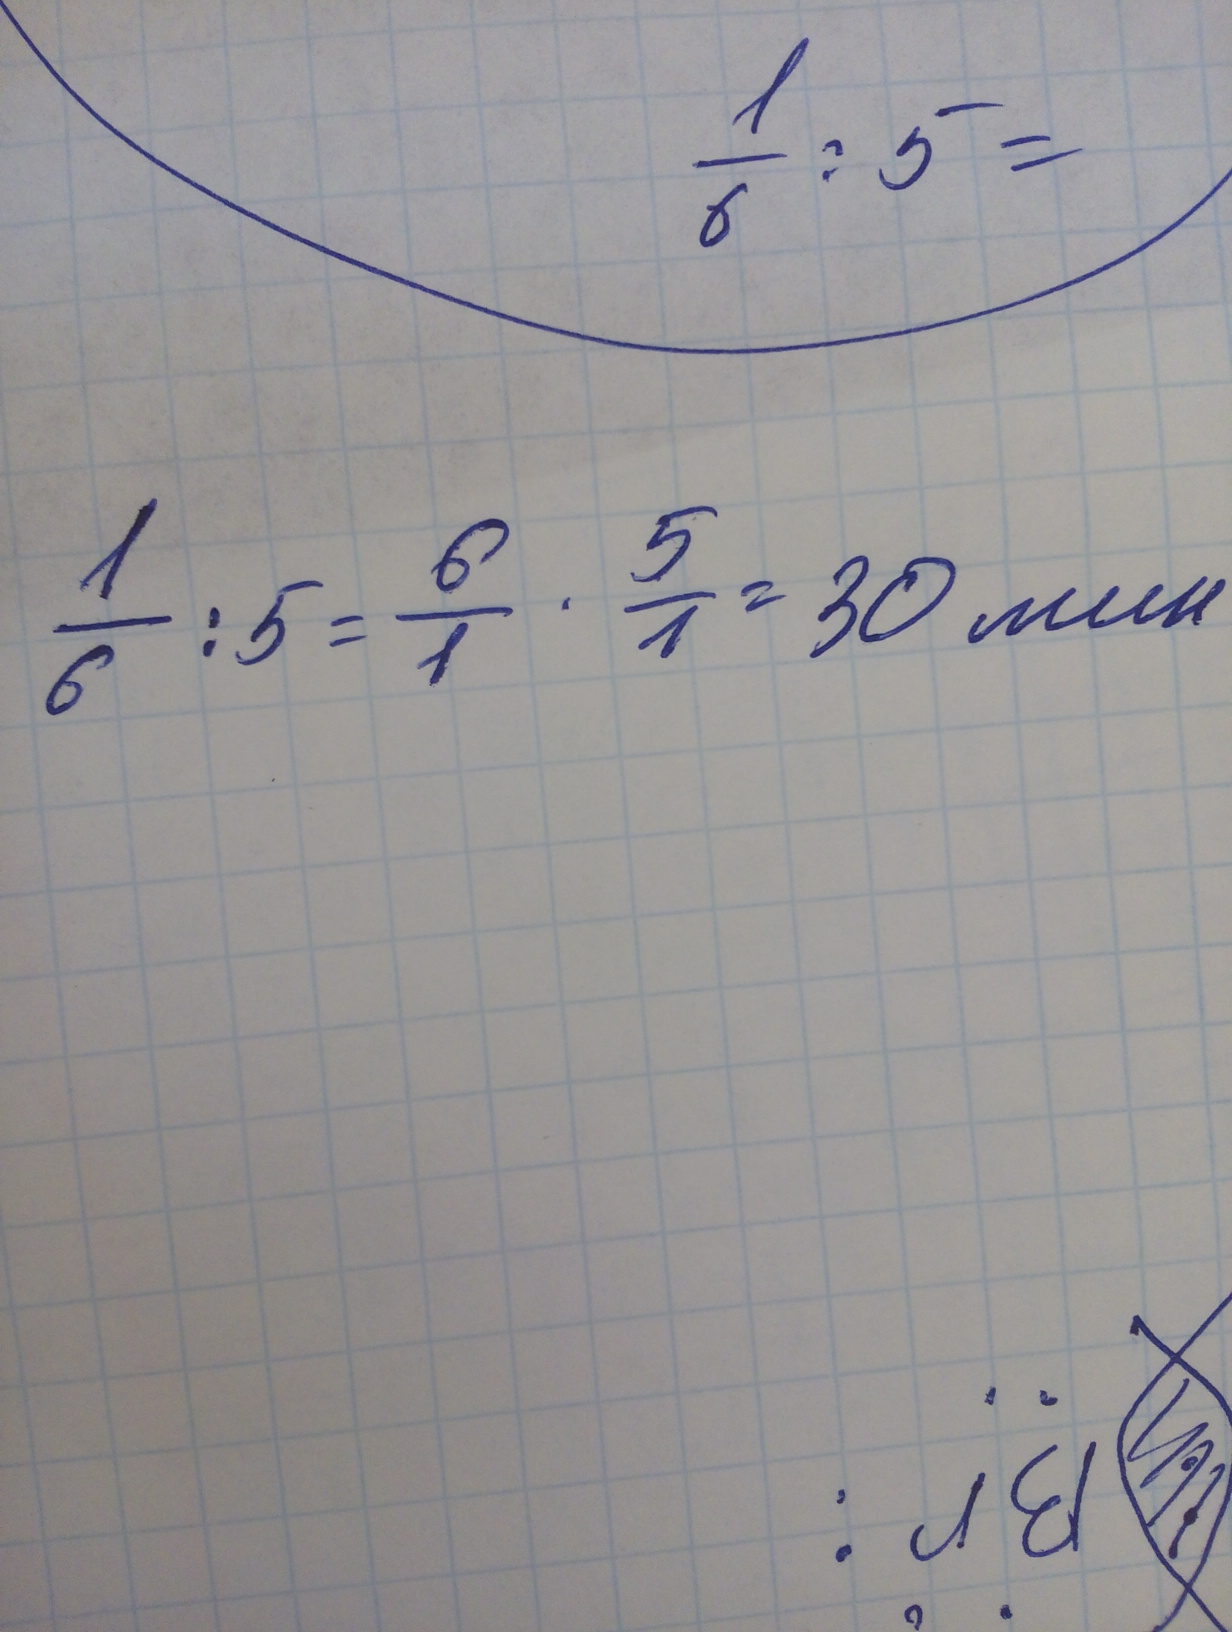 1/6 : 5 =
1/6 : 5 = 6/1 · 5/1 = 30 мин